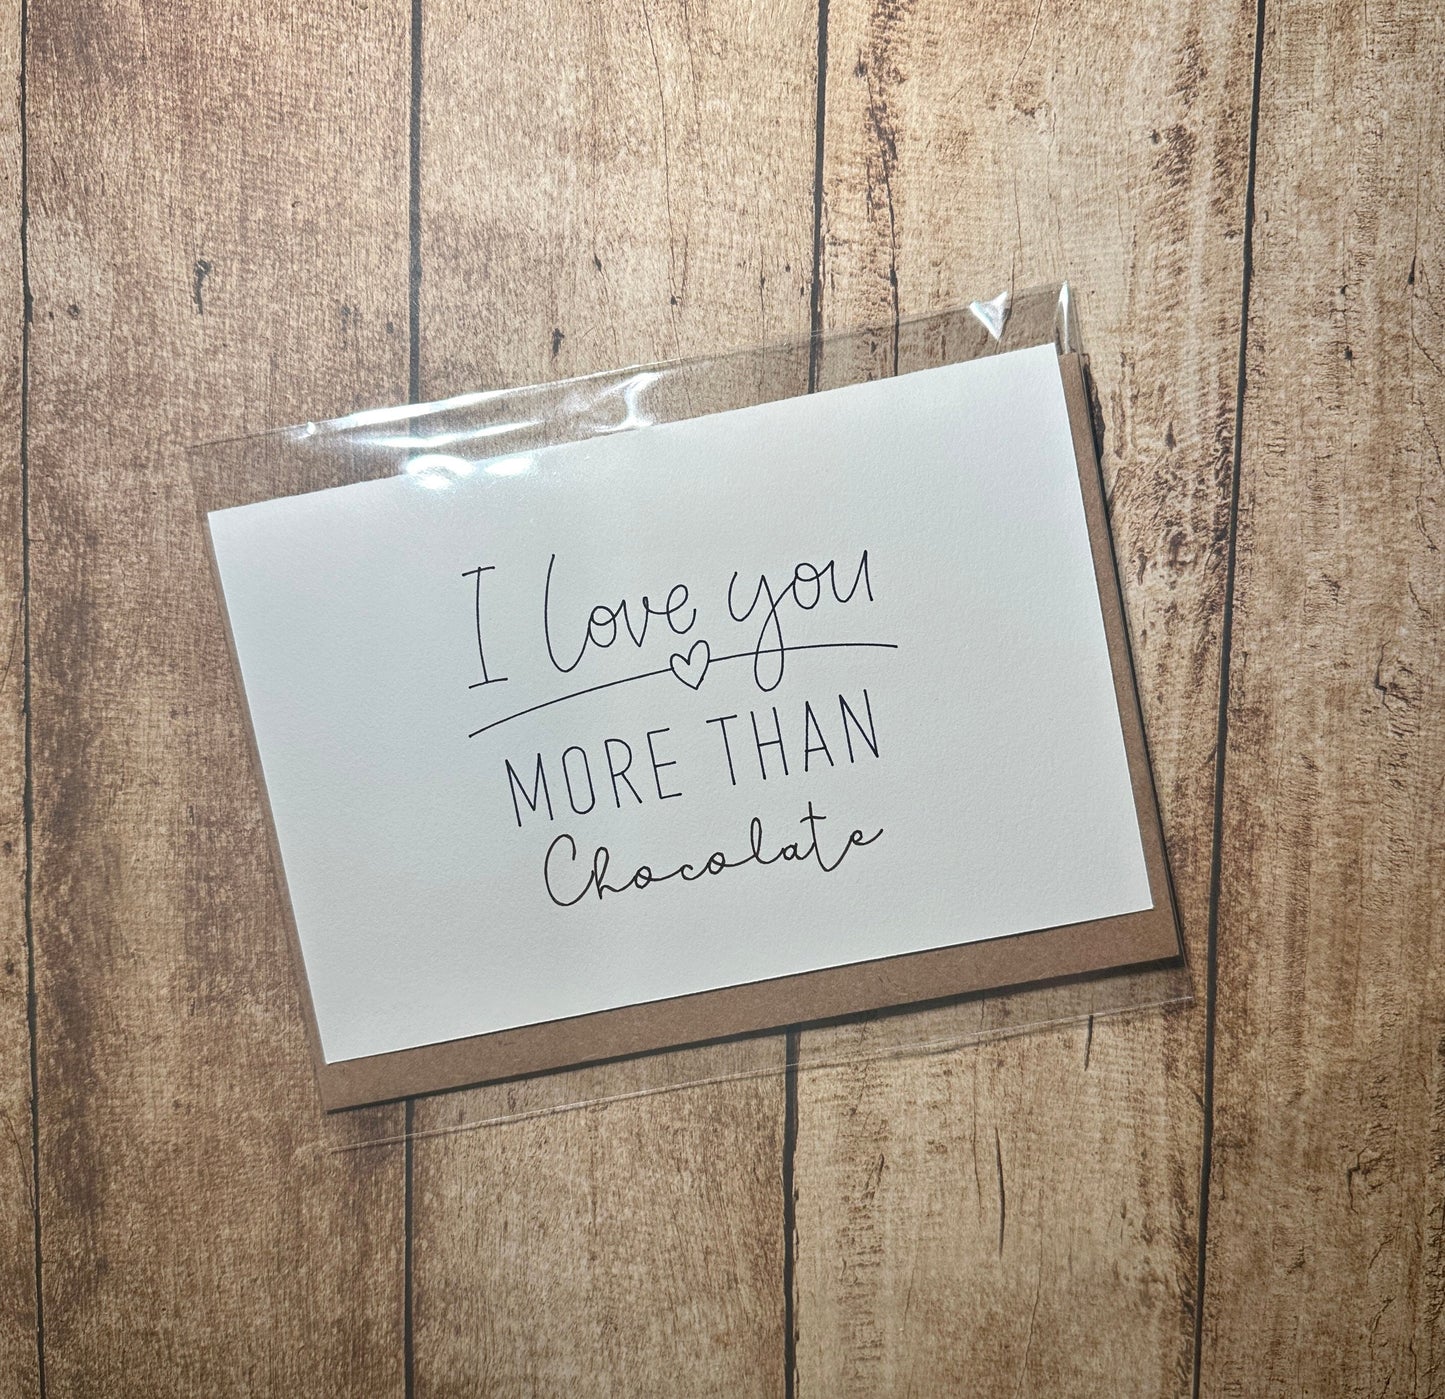 I love you
MORE THAN
Chocolate